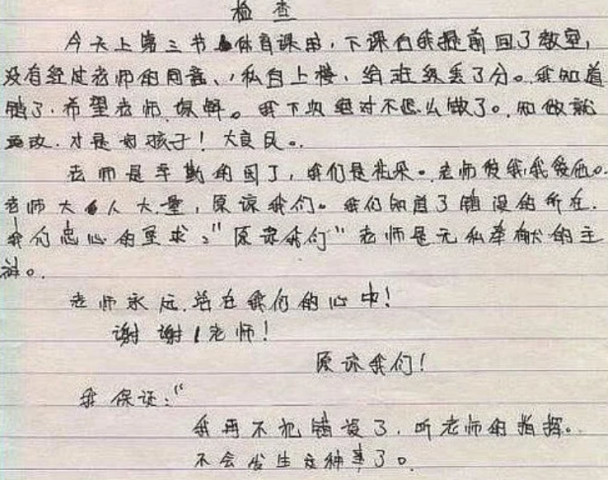 检查
今天上第三节体育课时,下课后我提前回了教室,
没有经过老师的同意,私自上楼,给班级丢了分。我知道
错了,希望老师原解。我下次绝对不怎么做了。知做就
要改,才是好孩子!大良民。
老师是辛勤的园丁,我们是花朵。老师爱我,我爱他。
老师大人大量,原谅我们。我们知道了错误的所在.
我们忠心的要求:"原谅我们"老师是无私奉献的主
神。
老师永远活在我们的心中!
谢谢!老师!
原谅我们!
我保证:"
我再不犯错误了,听老师的指挥。
不会发生这种事了。